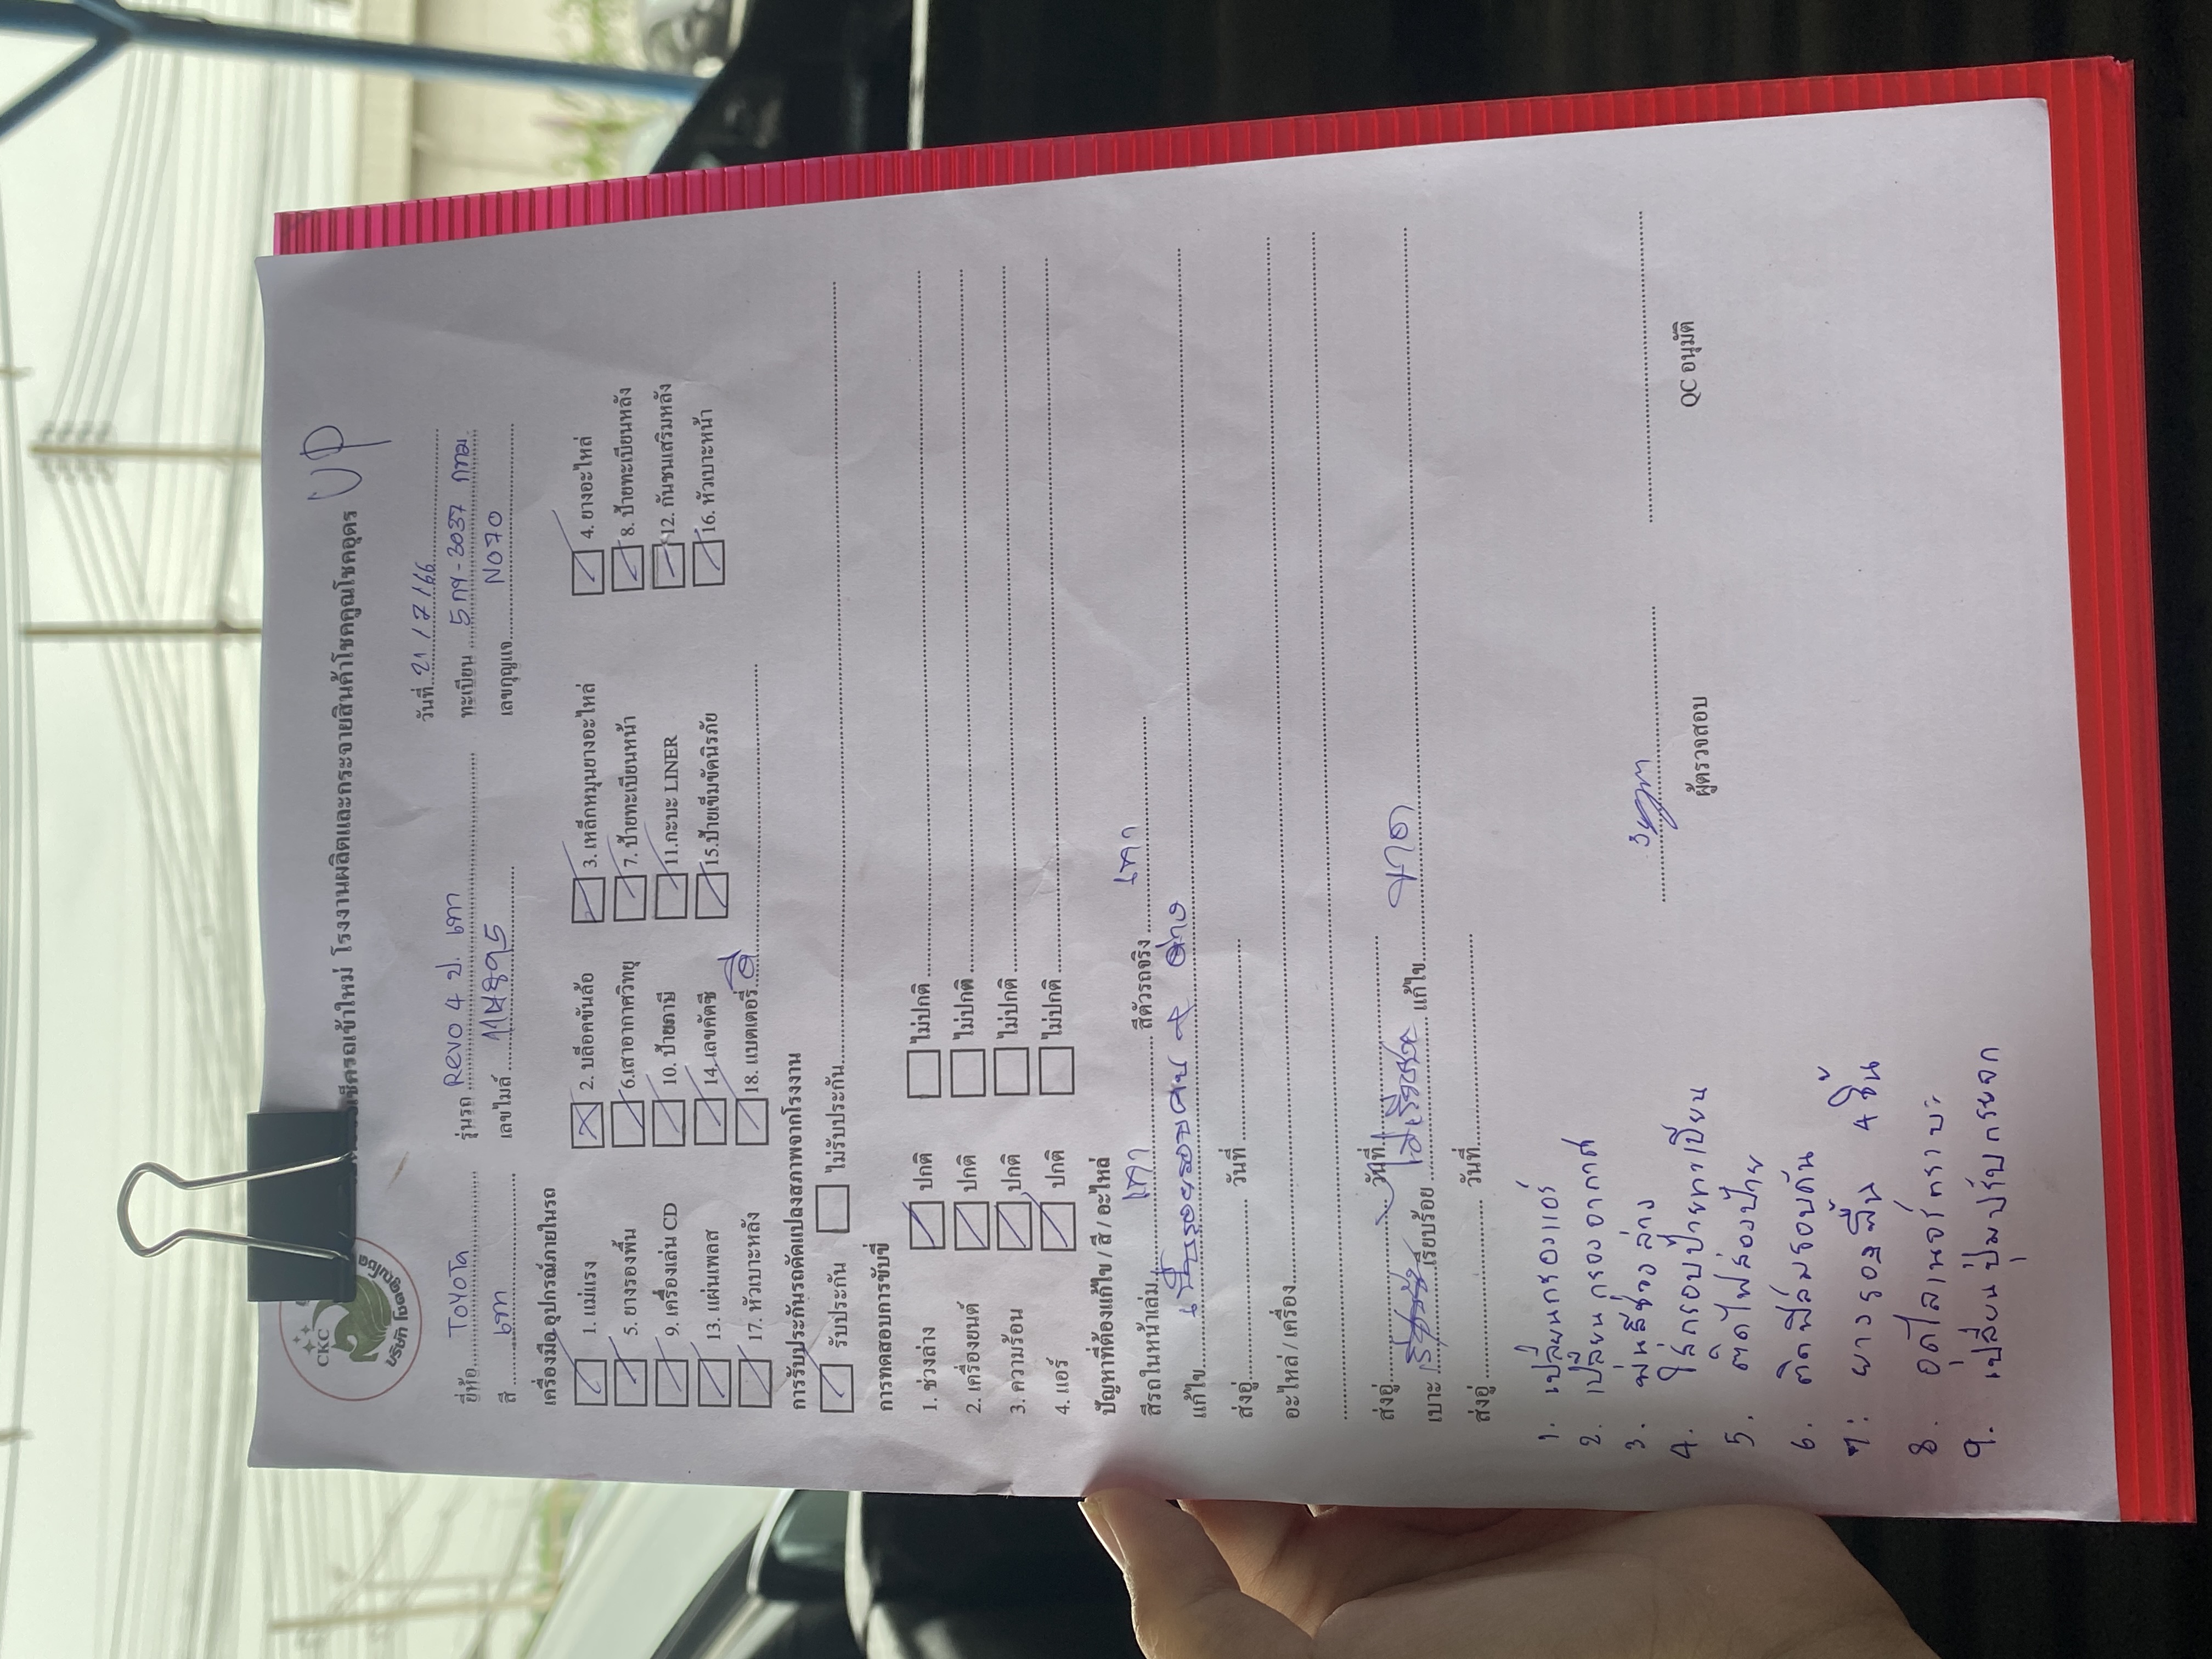 CKC
บริษัท โชคคูณโชค
เช็ครถเข้าใหม่ โรงงานผลิตและกระจายสินค้าโชคคูณโชคอุดร UP
วันที่ 21/7/66
ยี่ห้อ TOYOTA รุ่นรถ Revo 4 ป. เทา ทะเบียน 5กง-3037 กทม
สี เทา เลขไมล์ 114895 เลขกุญแจ N070
เครื่องมือ อุปกรณ์ภายในรถ
1. แม่แรง 2. บล็อคขันล้อ 3. เหล็กหมุนยางอะไหล่ 4. ยางอะไหล่
5. ยางรองพื้น 6.เสาอากาศวิทยุ 7. ป้ายทะเบียนหน้า 8. ป้ายทะเบียนหลัง
9. เครื่องเล่น CD 10. ป้ายภาษี 11.กะบะ LINER 12. กันชนเสริมหลัง
13. แผ่นเพลส 14.เลขคัตซี 15.ป้ายเข็มขัดนิรภัย 16. หัวเบาะหน้า
17. หัวเบาะหลัง 18. แบตเตอรี่
การรับประกันรถดัดแปลงสภาพจากโรงงาน
รับประกัน ไม่รับประกัน
การทดสอบการขับขี่
1. ช่วงล่าง ปกติ ไม่ปกติ
2. เครื่องยนต์ ปกติ ไม่ปกติ
3. ความร้อน ปกติ ไม่ปกติ
4. แอร์ ปกติ ไม่ปกติ
ปัญหาที่ต้องแก้ไข / สี / อะไหล่
สีรถในหน้าเล่ม เทา สีตัวรถจริง เทา
แก้ไข
ส่งอู่ วันที่
อะไหล่ / เครื่อง
ส่งอู่ วันที่
เบาะ เรียบร้อย แก้ไข ขาด
ส่งอู่ วันที่
1. เปลี่ยนกรองแอร์
2. เปลี่ยนกรองอากาศ
3. พ่นสีช่วงล่าง
4. ใส่กรอบป้ายทะเบียน
5. ติดไฟส่องป้าย
6. ติดฟิล์มรอบคัน
7. ยางรองพื้น 4 ชิ้น
8. อุดไลเนอร์กระบะ
9. เปลี่ยนปุ่มปรับกระจก
ผู้ตรวจสอบ QC อนุมัติ